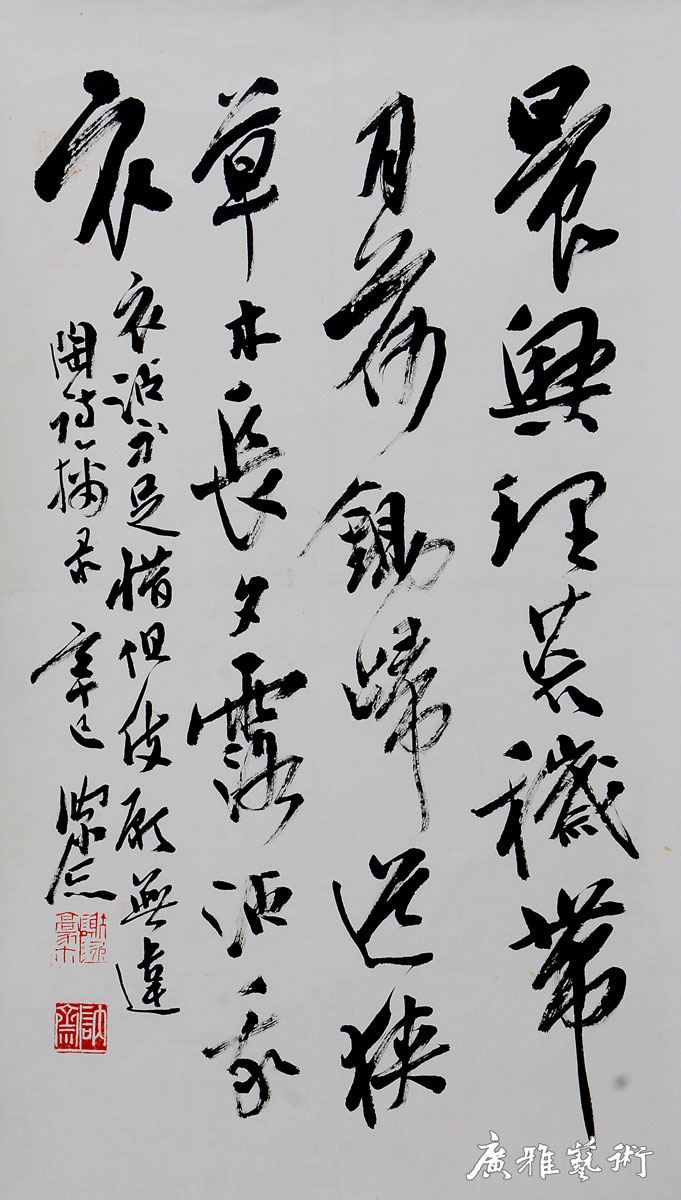 晨興理荒穢帶
月荷鋤歸道狹
草木長夕露沾我
衣 衣沾不足惜但使願無違
陶詩摘录 辛巳
廣雅藝術